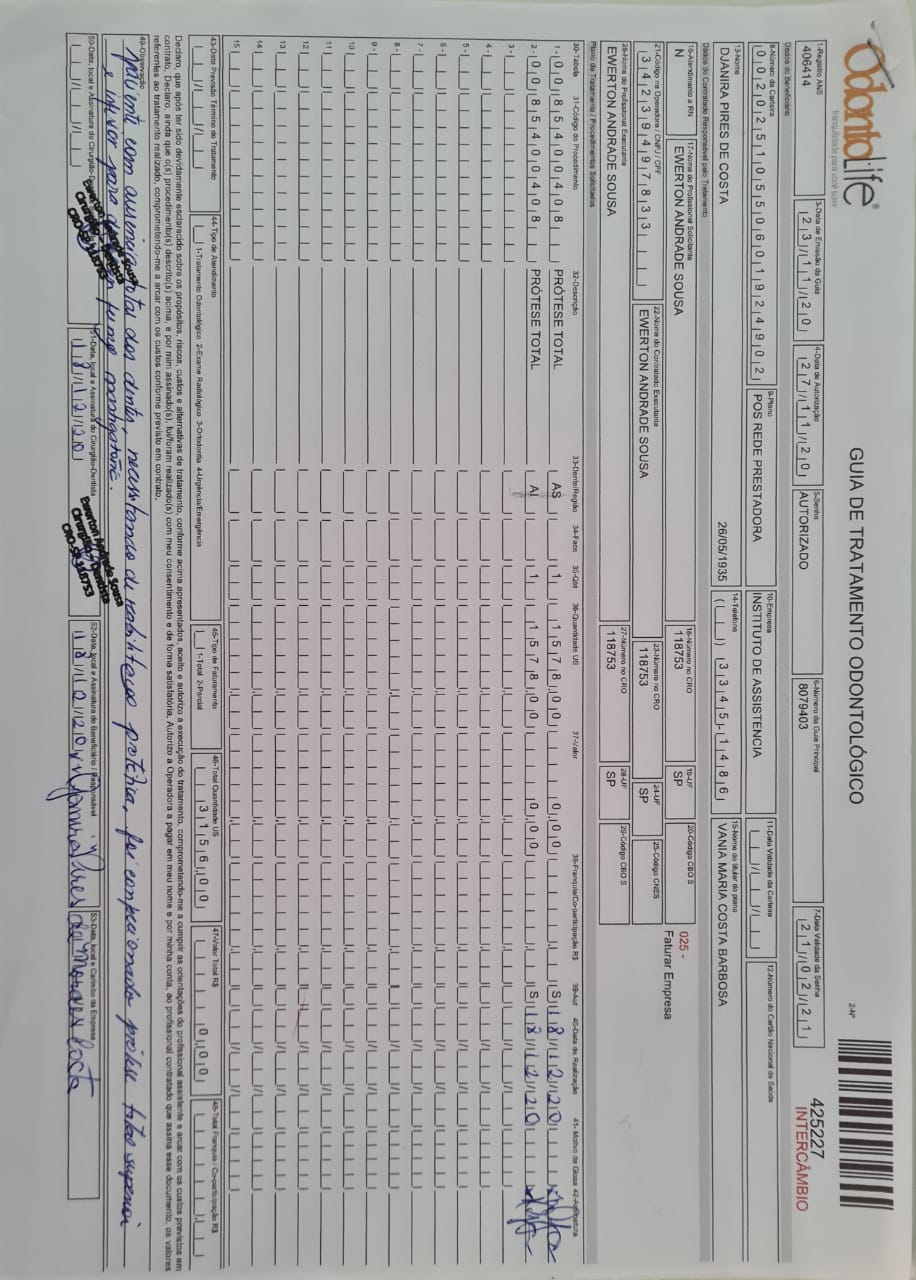 OdontoLife®
tranquilidade para você sorrir
GUIA DE TRATAMENTO ODONTOLÓGICO
2-Nº
425227
INTERCÂMBIO
1-Registro ANS
406414
3-Data de Emissão da Guia
23/11/20
4-Data de Autorização
27/11/20
5-Senha
AUTORIZADO
6-Número da Guia Principal
8079403
7-Data Validade da Senha
21/02/21
Dados do Beneficiário
8-Número da Carteira
00202510550601924902
9-Plano
POS REDE PRESTADORA
10-Empresa
INSTITUTO DE ASSISTENCIA
11-Data Validade da Carteira
12-Número do Cartão Nacional de Saúde
13-Nome
DJANIRA PIRES DE COSTA 26/05/1935
14-Telefone
( ) 3345-1486
15-Nome do titular do plano
VANIA MARIA COSTA BARBOSA
Dados do Contratado Responsável pelo Tratamento
16-Atendimento a RN
N
17-Nome do Profissional Solicitante
EWERTON ANDRADE SOUSA
18-Número no CRO
118753
19-UF
SP
20-Código CBO S
025 -
Faturar Empresa
21-Código na Operadora / CNPJ / CPF
34239497833
22-Nome do Contratado Executante
EWERTON ANDRADE SOUSA
23-Número no CRO
118753
24-UF
SP
25-Código CNES
26-Nome do Profissional Executante
EWERTON ANDRADE SOUSA
27-Número no CRO
118753
28-UF
SP
29-Código CBO S
Plano de Tratamento / Procedimentos Solicitados
30-Tabela 31-Código do Procedimento 32-Descrição 33-Dente/Região 34-Face 35-Qtd 36-Quantidade US 37-Valor 38-Franquia/Co-participação R$ 39-Aut 40-Data de Realização 41- Motivo da Glosa 42-Assinatura
1- 00 85400408 PRÓTESE TOTAL AS 1 1578,00 0,00 S 18/12/20
2- 00 85400408 PRÓTESE TOTAL AI 1 1578,00 0,00 S 18/12/20
3 -
4 -
5 -
6 -
7 -
8 -
9 -
10
11
12
13
14
15
43-Data Previsão Término do Tratamento
44-Tipo de Atendimento
1-Tratamento Odontológico 2-Exame Radiológico 3-Ortodontia 4-Urgência/Emergência
45-Tipo de Faturamento
1-Total 2-Parcial
46-Total Quantidade US
3156,00
47-Valor Total R$
0,00
48-Total Franquia / Co-participação R$
Declaro, que após ter sido devidamente esclarecido sobre os propósitos, riscos, custos e alternativas de tratamento, conforme acima apresentados, aceito e autorizo a execução do tratamento, comprometendo-me a cumprir as orientações do profissional assistente e arcar com os custos previstos em
contrato. Declaro, ainda que o(s) procedimento(s) descrito(s) acima, e por mim assinado(s), foi/foram realizado(s) com meu consentimento e de forma satisfatória. Autorizo a Operadora a pagar em meu nome e por minha conta, ao profissional contratado que assina esse documento, os valores
referentes ao tratamento realizado, comprometendo-me a arcar com os custos conforme previsto em contrato.
49-Observação
paciente com ausencia total dos dentes, necessitando de reabilitacao protetica, foi confeccionado prótese total superior
e inferior para função mastigatória.
50-Data, local e Assinatura do Cirurgião-Dentista
Ewerton Andrade Sousa
Cirurgião Dentista
CRO-SP 118753
51-Data, local e Assinatura do Cirurgião-Dentista
18/12/20
Ewerton Andrade Sousa
Cirurgião Dentista
CRO-SP 118753
52-Data, local e Assinatura do Beneficiário / Responsável
18/12/20 Djanira Pires de Moraes Costa
53-Data, local e Carimbo da Empresa